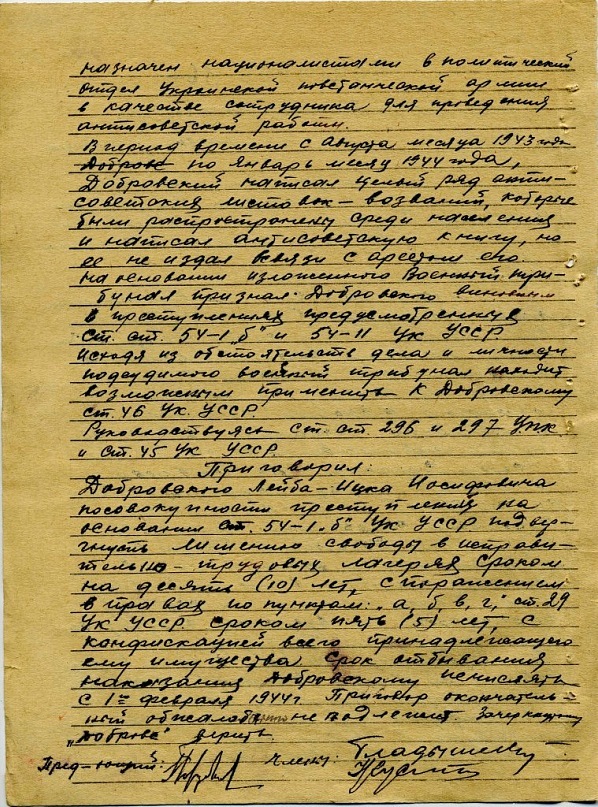 назначен националистами в политический
отдел Украинской повстанческой армии
в качестве сотрудника для проведения
антисоветской работы.
В период времени с августа месяца 1943 года
Добровс по январь месяц 1944 года,
Добровский написал целый ряд анти-
советских листовок - воззваний, которые
были распространены среди населения
и написал антисоветскую книгу, но
ее не издал всвязи с арестом его.
На основании изложенного Военный три-
бунал признал: Добровского виновным
в преступлениях предусмотренных
ст. ст. 54-1 „б" и 54-11 УК УССР
Исходя из обстоятельств дела и личности
подсудимого военный трибунал находит
возможным применить к Добровскому
ст. 46 УК УССР
Руководствуясь ст. ст. 296 и 297 УПК
и ст. 45 УК УССР
Приговорил:
Добровского Лейба-Ицка Иосифовича
посовокупности преступлений на
основании ст. 54-1 „б" УК УССР подвер-
гнуть лишению свободы в исправи-
тельно-трудовых лагерях сроком
на десять (10) лет, с поражением
в правах по пунктам: „а, б, в, г," ст. 29
УК УССР сроком пять (5) лет, с
конфискацией всего принадлежащего
ему имущества срок отбывания
наказания Добровскому исчислять
с 1го февраля 1944 г. Приговор окончатель-
ный обжалованию не подлежит. Зачеркнутому
„Добровс" верить.
Пред-ющий: Члены: